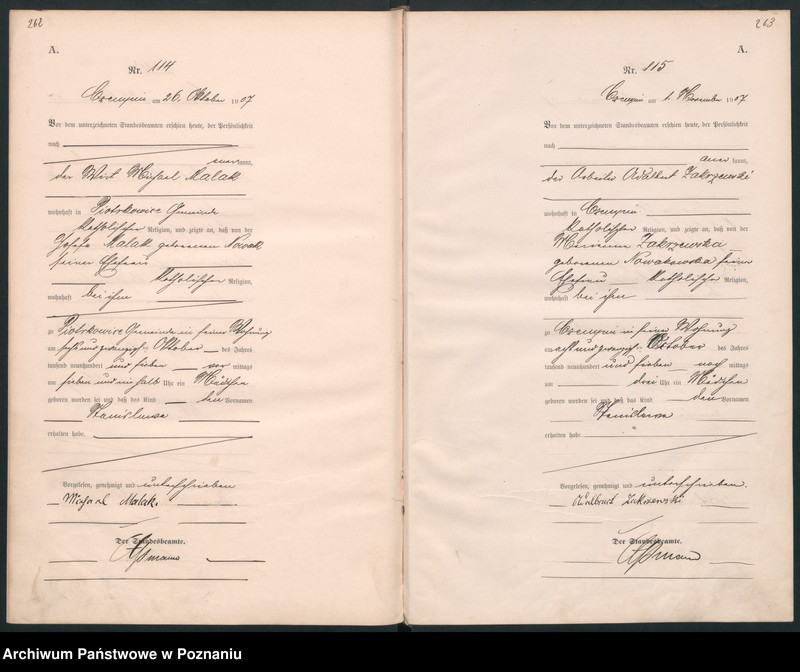 262
A.
Nr. 114
am 26. Oktober 1907
Vor dem unterzeichneten Standesbeamten erschien heute, der Persönlichkeit
nach
kannt,
der Wirt Michael Malak
wohnhaft in Piotrkowice Gemeinde
katholischer Religion, und zeigte an, daß von der
Josefa Malak geborenen Nowak
seiner Ehefrau
katholischer Religion,
wohnhaft bei ihm
zu Piotrkowice Gemeinde in seiner Wohnung
am sechsundzwanzigsten Oktober des Jahres
tausend neunhundert und sieben vor mittags
um sieben und ein halb Uhr ein Mädchen
geboren worden sei und daß das Kind den Vornamen
Stanislawa
erhalten habe.
Vorgelesen, genehmigt und unterschrieben
Michael Malak.
Der Standesbeamte.
263
A.
Nr. 115
am 1. November 1907
Vor dem unterzeichneten Standesbeamten erschien heute, der Persönlichkeit
nach
kannt,
der Arbeiter Adalbert Zakrzewski
wohnhaft in
katholischer Religion, und zeigte an, daß von der
Zakrzewska
geborenen Nowakowska seiner
Ehefrau katholischer Religion,
wohnhaft bei ihm
zu in seiner Wohnung
am achtundzwanzigsten Oktober des Jahres
tausend neunhundert und sieben nach mittags
um drei Uhr ein Mädchen
geboren worden sei und daß das Kind den Vornamen
Stanislawa
erhalten habe.
Vorgelesen, genehmigt und unterschrieben.
Zakrzewski
Der Standesbeamte.
Archiwum Państwowe w Poznaniu